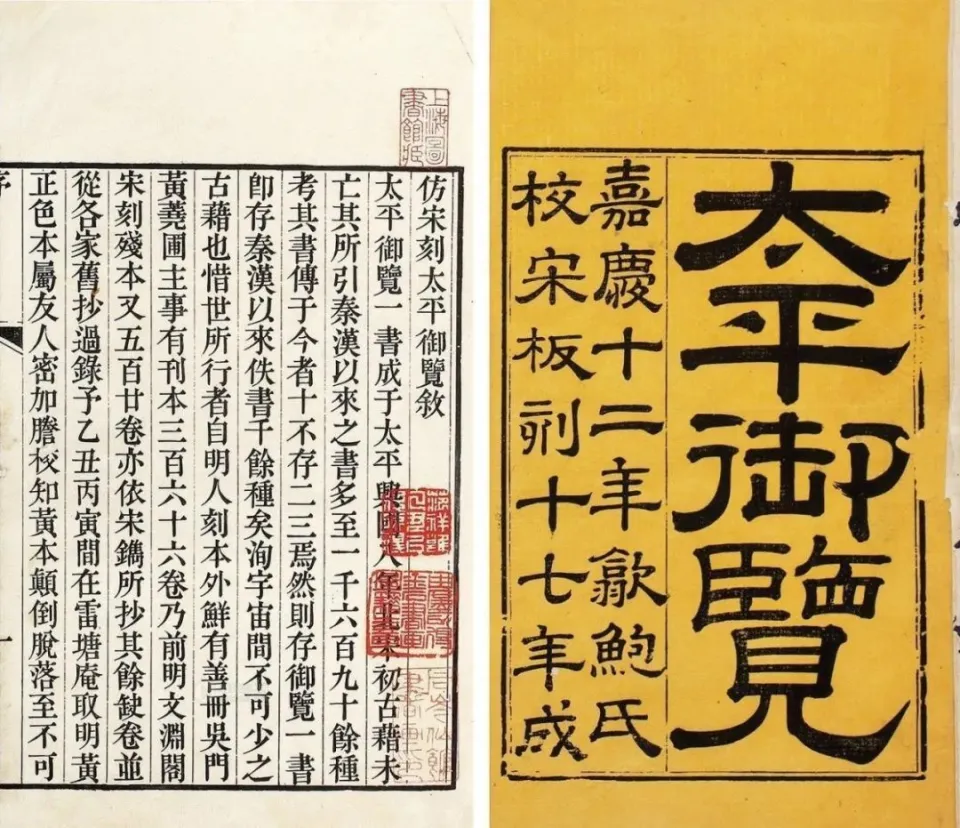 太平御覽
嘉慶十二年歙鮑氏
校宋板刻十七年成
上海圖
書館藏
仿宋刻太平御覽敘
太平御覽一書成于太平興國八年北宋初古藉未
亡其所引秦漢以來之書多至一千六百九十餘種
考其書傳于今者十不存二三焉然則存御覽一書
卽存秦漢以來佚書千餘種矣洵宇宙間不可少之
古藉也惜世所行者自明人刻本外鮮有善冊吳門
黃蕘圃主事有刊本三百六十六卷乃前明文淵閣
宋刻殘本又五百廿卷亦依宋鐫所抄其餘缺卷並
從各家舊抄過錄予乙丑丙寅間在雷塘庵取明黃
正色本屬友人密加謄校知黃本顛倒脫落至不可
序
一